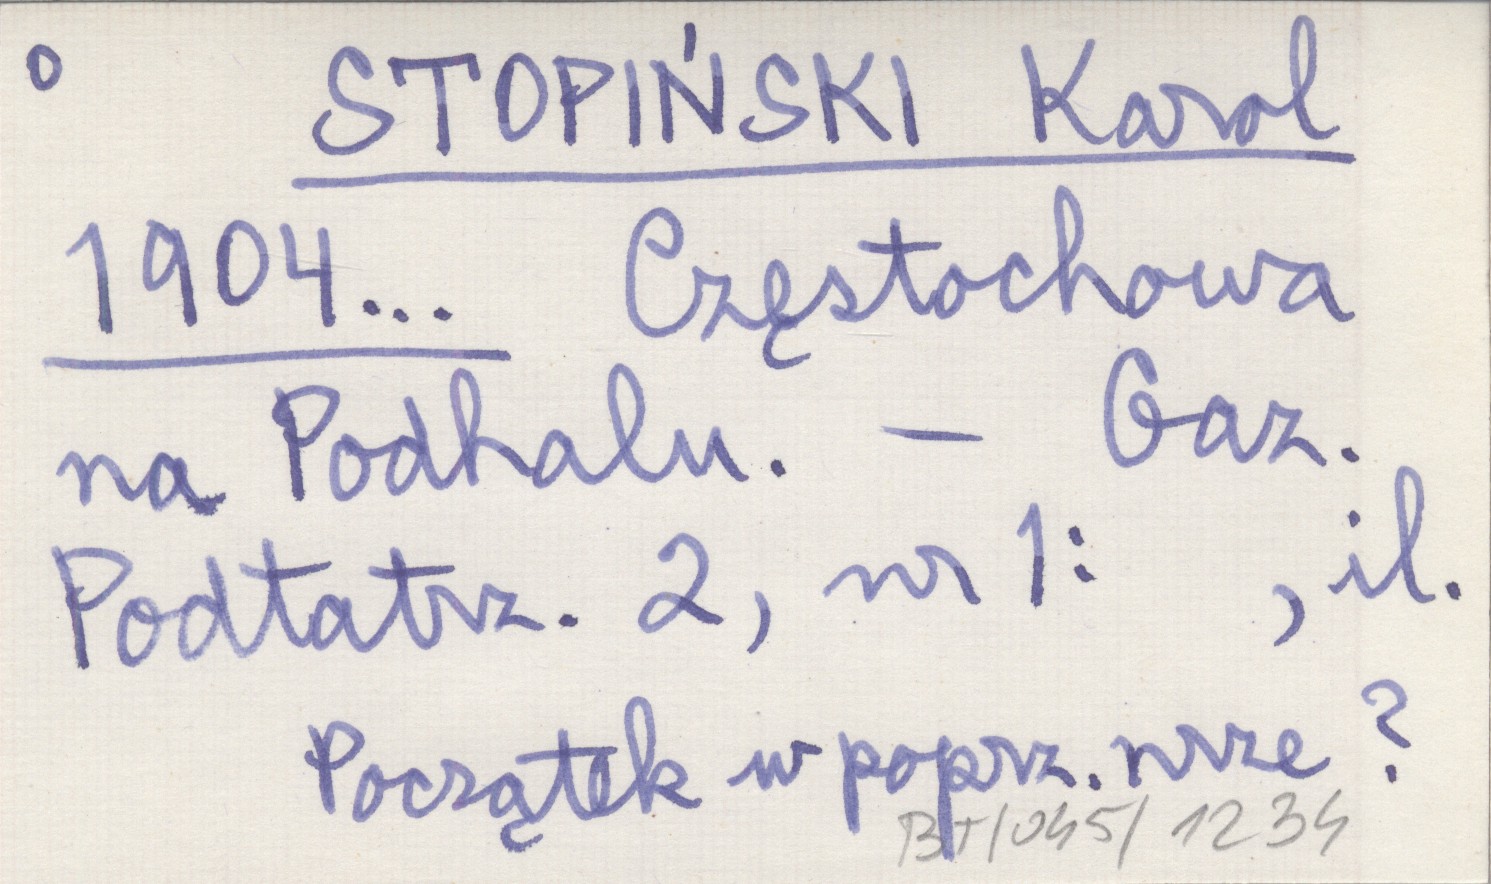 o STOPIŃSKI Karol
1904... Częstochowa
na Podhalu. — Gaz.
Podtatrz. 2, nr 1: , il.
Początek w poprz. nrze?
BT/045/1234